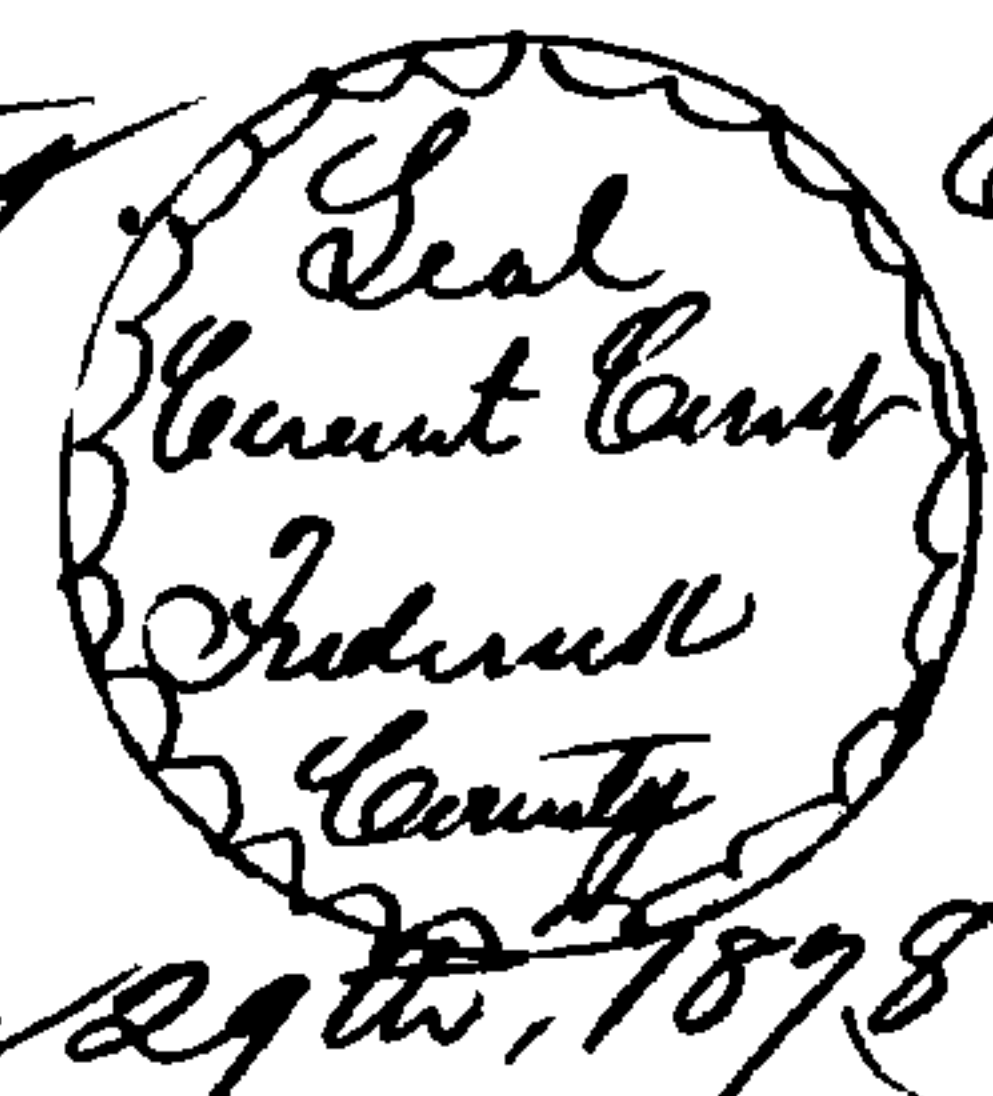 Seal
Circuit Court
Frederick
County
29th, 1878